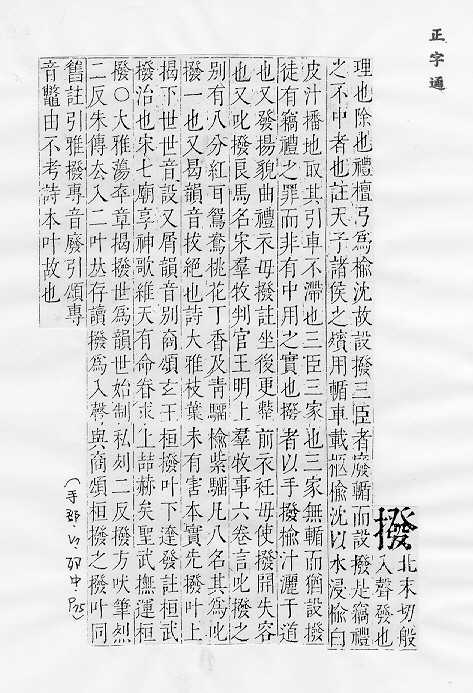 正字通
撥
北末切般
入聲發也
理也除也禮檀弓爲楡沈故設撥三臣者廢輴而設撥是竊禮
之不中者也註天子諸侯之殯用輴車載柩楡沈以水浸楡白
皮汁播地取其引車不滯也三臣三家也三家無輴而猶設撥
徒有竊禮之罪而非有中用之實也撥者以手撥楡汁灑于道
也又發揚貌曲禮衣毋撥註坐後更舉前衣衽毋使撥開失容
也又叱撥良馬名宋羣牧判官王明上羣牧事六卷言叱撥之
別有八分紅耳鴛鴦桃花丁香及靑騮楡紫騮凡八名其爲叱
撥一也又曷韻音拔絶也詩大雅枝葉未有害本實先撥叶上
揭下世世音設又屑韻音別商頌玄王桓撥叶下達發註桓武
撥治也宋七廟享神歌維天有命眷求上喆赫矣聖武撫運桓
撥○大雅蕩卒章揭撥世爲韻世始制私列二反撥方吠筆烈
二反朱傳厺入二叶𠀤存讀撥爲入聲與商頌桓撥之撥叶同
舊註引雅撥專音廢引頌專
音鼈由不考詩本叶故也